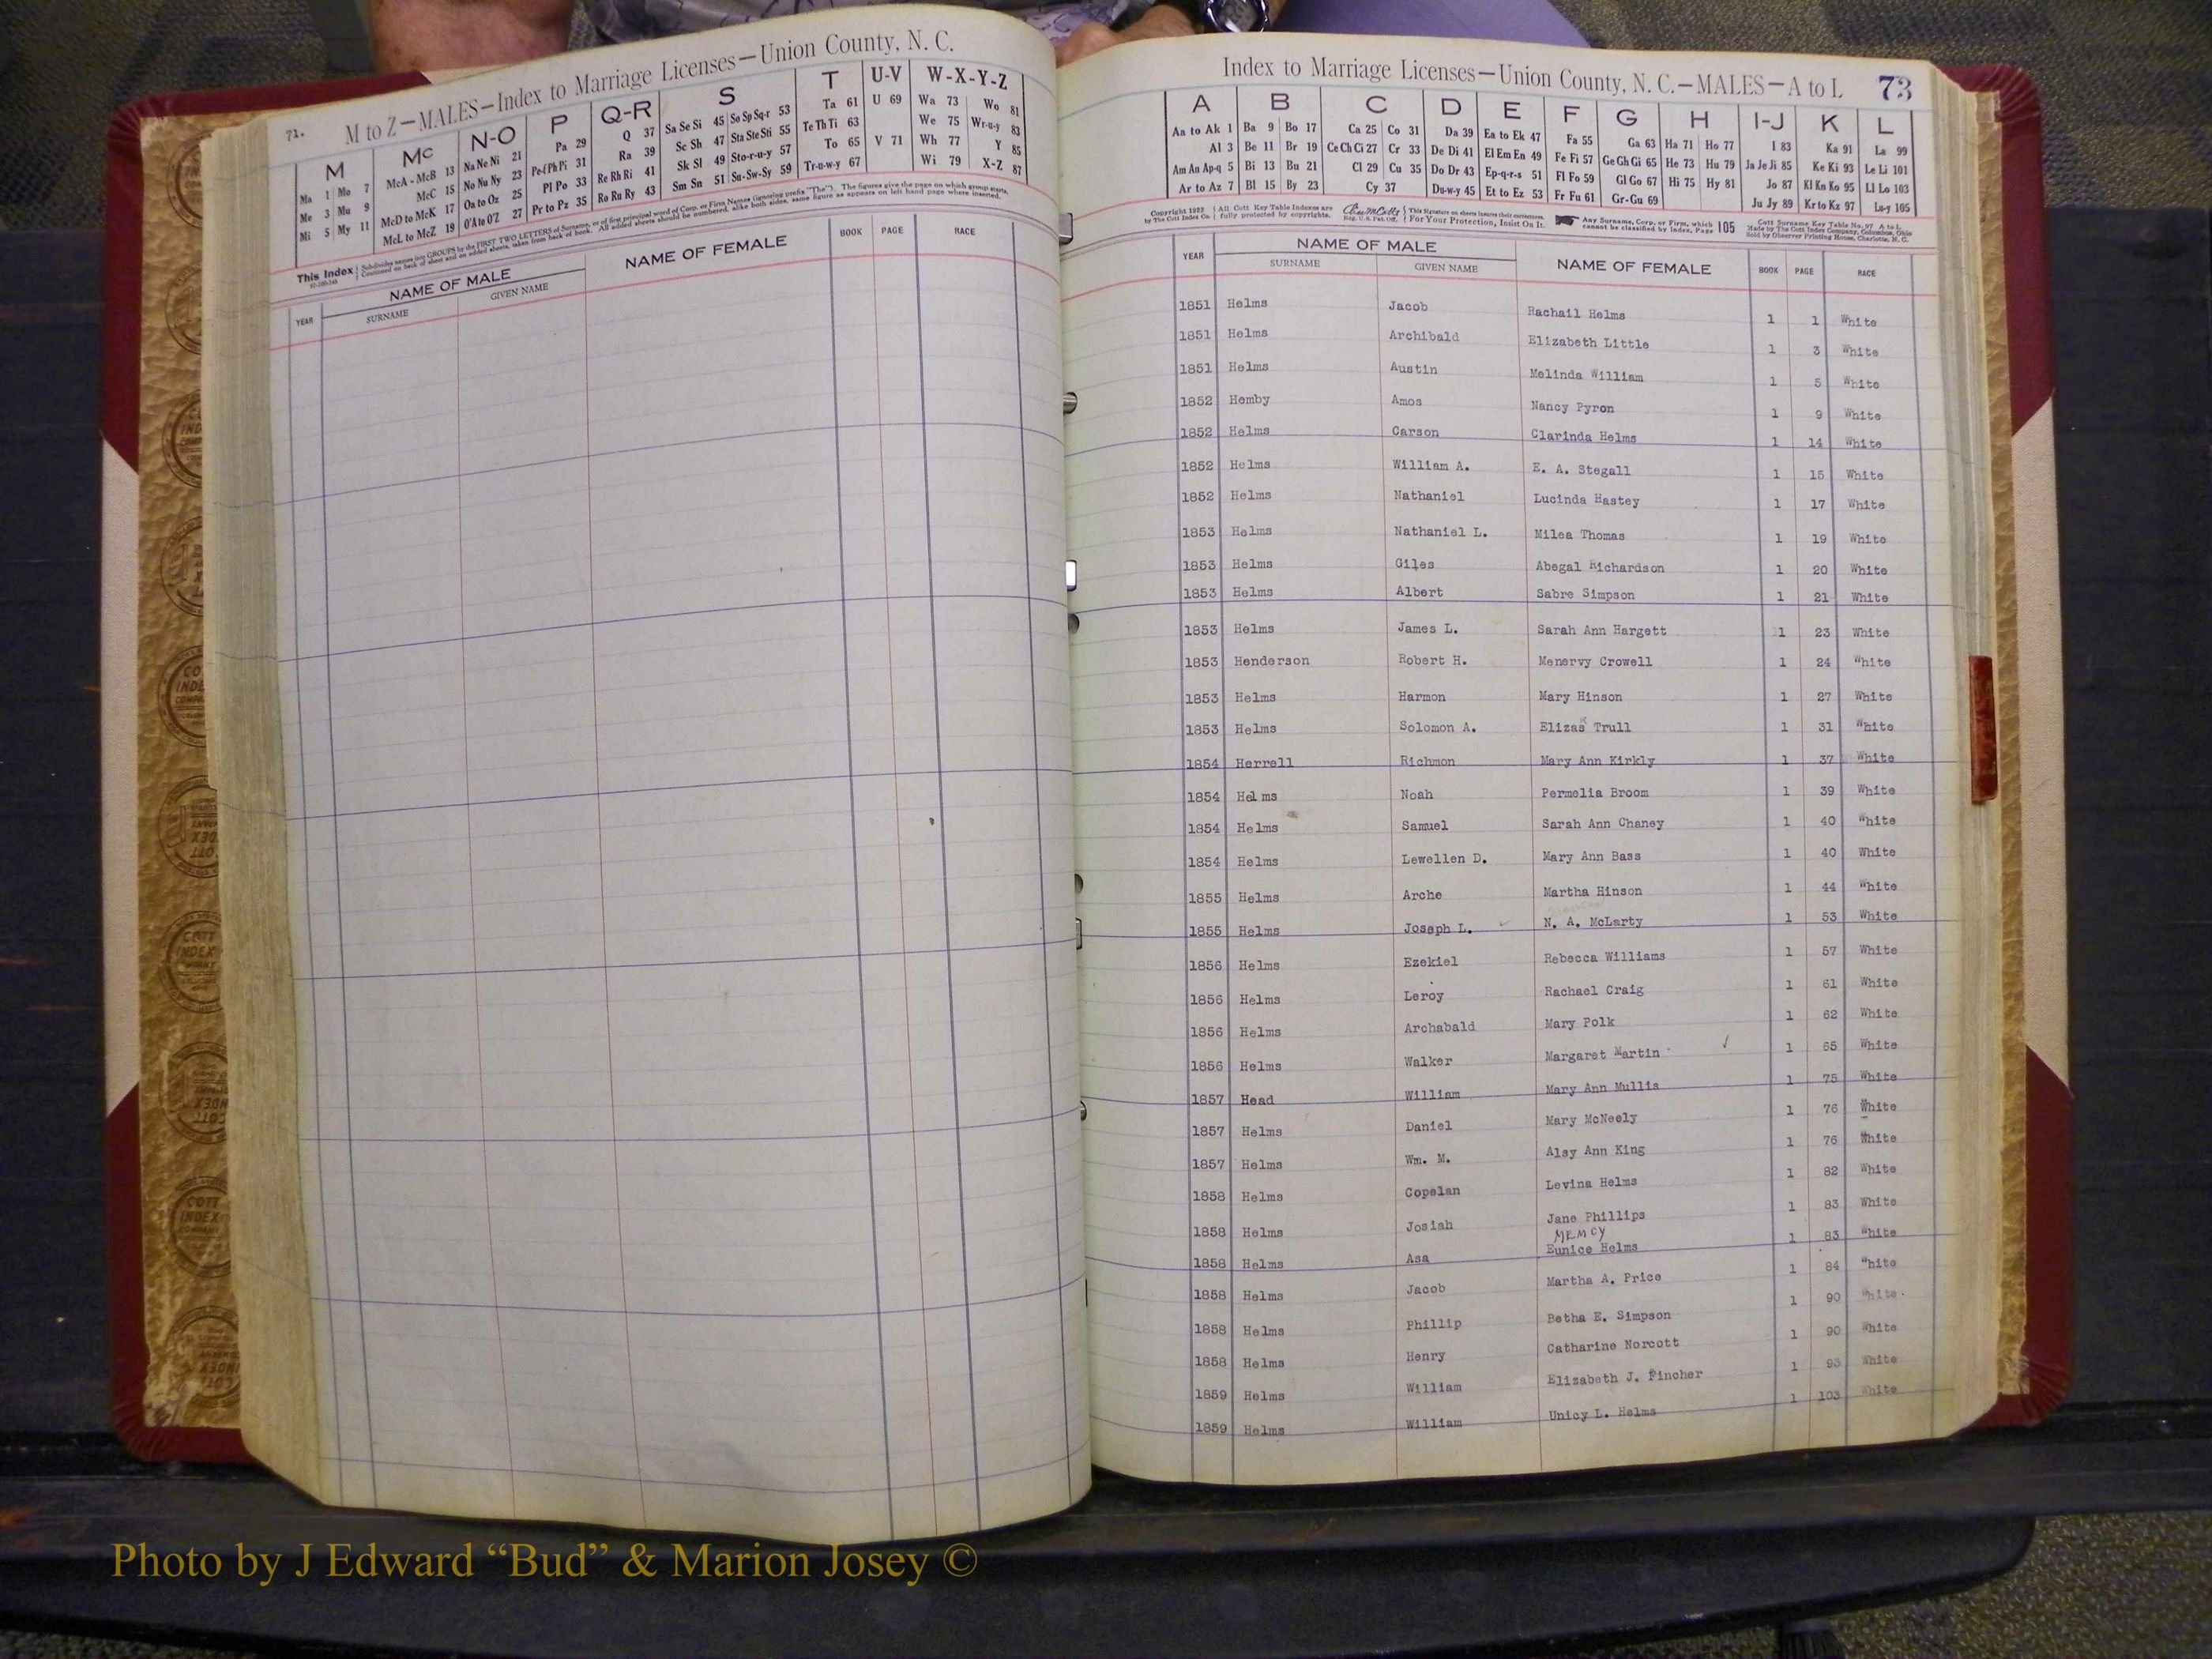 71. M to Z—MALES—Index to Marriage Licenses—Union County, N. C.
M Mc N-O P Q-R S T U-V W-X-Y-Z
Ma 1 Mo 7 McA - McB 13 Na Ne Ni 21 Pa 29 Q 37 Sa Se Si 45 So Sp Sq-r 53 Ta 61 U 69 Wa 73 Wo 81
Me 3 Mu 9 McC 15 No Nu Ny 23 Pe-f Ph Pi 31 Ra 39 Sc Sh 47 Sta Ste Sti 55 Te Th Ti 63 We 75 Wr-u-y 83
Mi 5 My 11 McD to McK 17 Oa to Oz 25 Pl Po 33 Re Rh Ri 41 Sk Sl 49 Sto-r-u-y 57 To 65 V 71 Wh 77 Y 85
McL to McZ 19 O'A to O'Z 27 Pr to Pz 35 Ro Ru Ry 43 Sm Sn 51 Su-Sw-Sy 59 Tr-u-w-y 67 Wi 79 X-Z 87
This Index Subdivides names into GROUPS by the FIRST TWO LETTERS of Surname, or of first principal word of Corp. or Firm Names (ignoring prefix "The"). The figures give the page on which group starts.
Continued on back of sheet and on added sheets, taken from back of book. All added sheets should be numbered, alike both sides, same figure as appears on left hand page where inserted.
YEAR NAME OF MALE SURNAME GIVEN NAME NAME OF FEMALE BOOK PAGE RACE
Index to Marriage Licenses—Union County, N. C.—MALES—A to L 73
A B C D E F G H I-J K L
Aa to Ak 1 Ba 9 Bo 17 Ca 25 Co 31 Da 39 Ea to Ek 47 Fa 55 Ga 63 Ha 71 Ho 77 I 83 Ka 91 La 99
Al 3 Be 11 Br 19 Ce Ch Ci 27 Cr 33 De Di 41 El Em En 49 Fe Fi 57 Ge Gh Gi 65 He 73 Hu 79 Ja Je Ji 85 Ke Ki 93 Le Li 101
Am An Ap-q 5 Bi 13 Bu 21 Cl 29 Cu 35 Do Dr 43 Ep-q-r-s 51 Fl Fo 59 Gl Go 67 Hi 75 Hy 81 Jo 87 Kl Kn Ko 95 Ll Lo 103
Ar to Az 7 Bl 15 By 23 Cy 37 Du-w-y 45 Et to Ez 53 Fr Fu 61 Gr-Gu 69 Ju Jy 89 Kr to Kz 97 Lu-y 105
Copyright 1922 by The Cott Index Co. All Cott Key Table Indexes are fully protected by copyrights. Reg. U. S. Pat. Off. This Signature on sheets insures their correctness. For Your Protection, Insist On It. Any Surname, Corp. or Firm, which cannot be classified by Index, Page 105 Cott Surname Key Table No. 97 A to L Made by The Cott Index Company, Columbus, Ohio Sold by Observer Printing House, Charlotte, N. C.
YEAR NAME OF MALE SURNAME GIVEN NAME NAME OF FEMALE BOOK PAGE RACE
1851 Helms Jacob Rachail Helms 1 1 White
1851 Helms Archibald Elizabeth Little 1 3 White
1851 Helms Austin Melinda William 1 5 White
1852 Hemby Amos Nancy Pyron 1 9 White
1852 Helms Carson Clarinda Helms 1 14 White
1852 Helms William A. E. A. Stegall 1 15 White
1852 Helms Nathaniel Lucinda Hastey 1 17 White
1853 Helms Nathaniel L. Milea Thomas 1 19 White
1853 Helms Giles Abegal Richardson 1 20 White
1853 Helms Albert Sabre Simpson 1 21 White
1853 Helms James L. Sarah Ann Hargett 1 23 White
1853 Henderson Robert H. Menervy Crowell 1 24 White
1853 Helms Harmon Mary Hinson 1 27 White
1853 Helms Solomon A. Elizas Trull 1 31 White
1854 Herrell Richmon Mary Ann Kirkly 1 37 White
1854 Helms Noah Permelia Broom 1 39 White
1854 Helms Samuel Sarah Ann Chaney 1 40 White
1854 Helms Lewellen D. Mary Ann Bass 1 40 White
1855 Helms Arche Martha Hinson 1 44 White
1855 Helms Joseph L. ✓ N. A. McLarty 1 53 White
1856 Helms Ezekiel Rebecca Williams 1 57 White
1856 Helms Leroy Rachael Craig 1 61 White
1856 Helms Archabald Mary Polk 1 62 White
1856 Helms Walker Margaret Martin ✓ 1 65 White
1857 Head William Mary Ann Mullis 1 75 White
1857 Helms Daniel Mary McNeely 1 76 White
1857 Helms Wm. M. Alsy Ann King 1 76 White
1858 Helms Copelan Levina Helms 1 82 White
1858 Helms Josiah Jane Phillips 1 83 White
MEMCY
1858 Helms Asa Eunice Helms 1 83 White
1858 Helms Jacob Martha A. Price 1 84 White
1858 Helms Phillip Betha E. Simpson 1 90 White
1858 Helms Henry Catharine Norcott 1 90 White
1859 Helms William Elizabeth J. Fincher 1 93 White
1859 Helms William Unicy L. Helms 1 103 White
Photo by J Edward “Bud” & Marion Josey ©